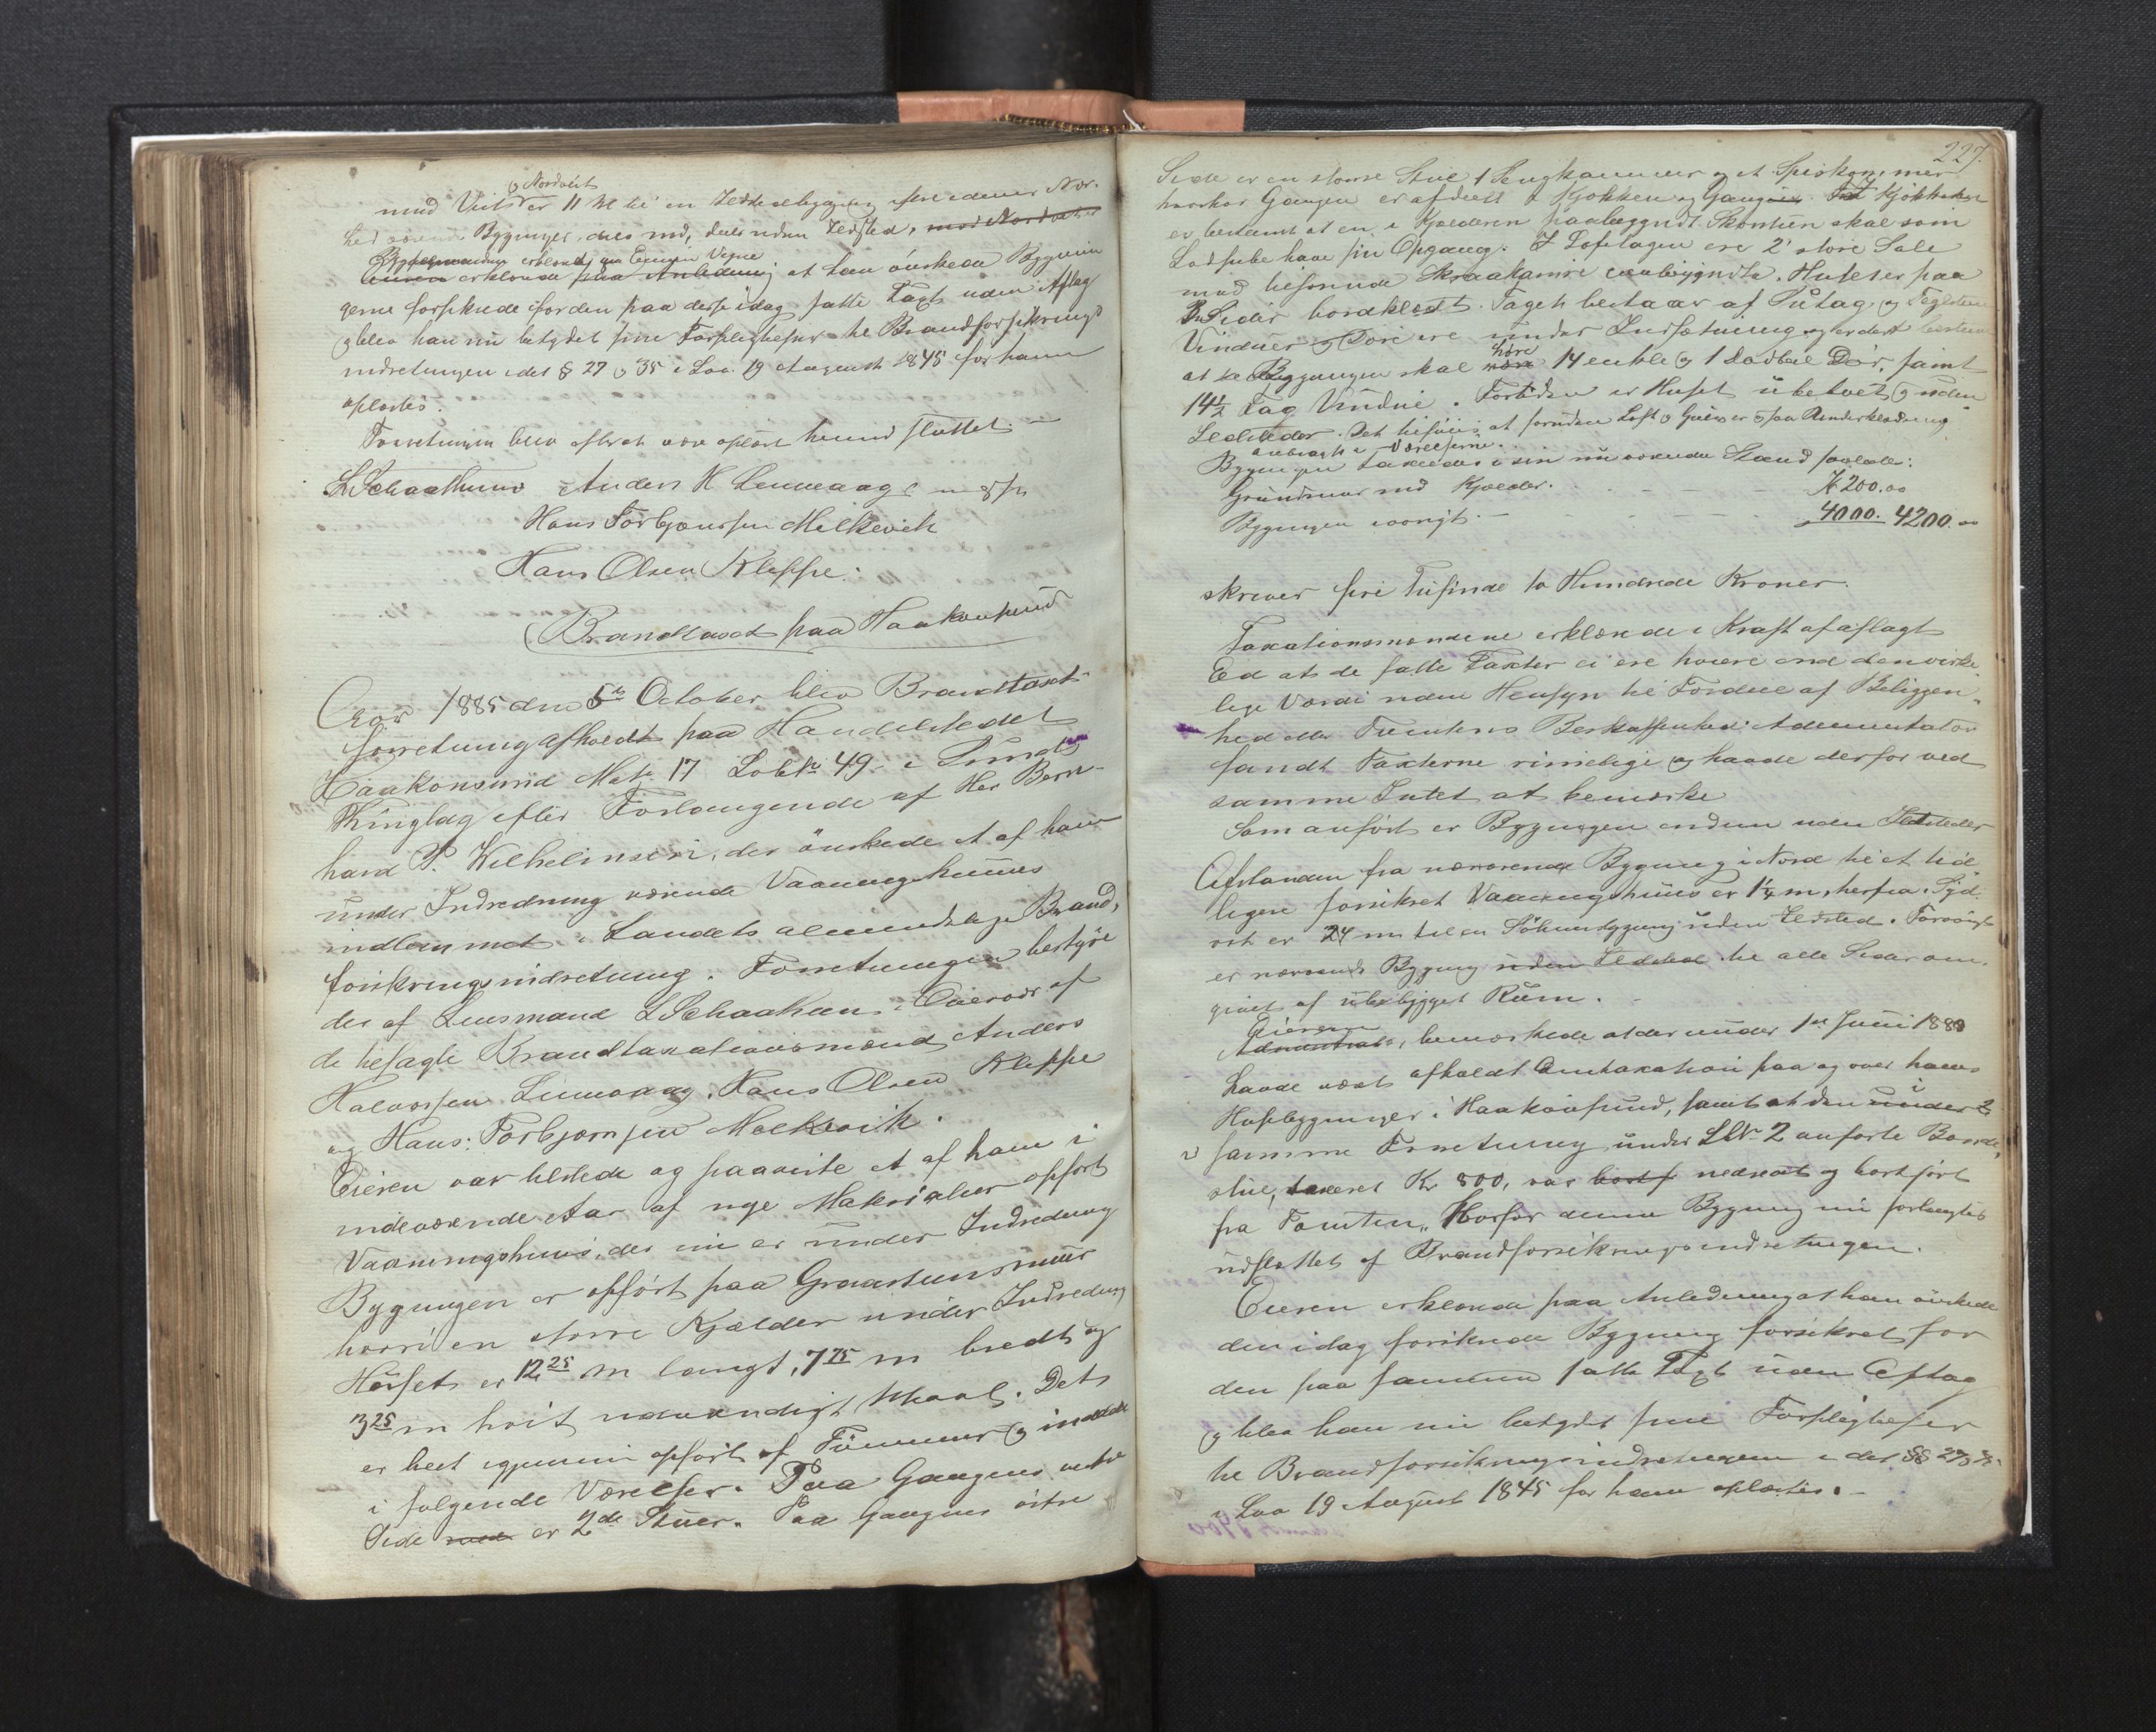 og Nordvest
mod Vest er 11 M til en Ildstedbygning
hed værende Bygninger, dels med, dels uden Ildsted, mod Nordvest er
erklærede paa Eierens Vegne
Eieren erklærede paa Anledning at han ønskede Bygnin
gerne forsikrede for den paa disse idag satte Taxt uden Afslag
og blev han nu betydet sine Forpligtelser til Brandforsikrings
indretningen idet § 27 og 35 i Lov 19 August 1845 for ham
oplæstes.
Forretningen blev efter at være oplæst hermed sluttet. —
L Schaathuun Anders H Leiraaag
Hans Torbjørnsen Milkevik
Hans Olsen Kleppe.
Brandtaxt paa Haakonsund
Aar 1885 den 5te October blev Brandtaxt
forretning afholdt paa Handelsstedet
Haakonsund Mat. 17 Løb No 49 i Sunds
Thinglag efter Forlangende af Her Bern-
hard P. Wilhelmsen, der ønskede et af ham
under Indredning værende Vaaningshuus
indlemmet i Landets almindelige Brand,
forsikringsindretning. Forretningen bestyre
des af Lensmand L Schaathuun i Overvær af
de befagte Brandtaxationsmænd Anders
Halvorsen Leiraaag, Hans Olsen Kleppe
og Hans Torbjørnsen Melkevik.
Eieren var tilstede og paaviste et af ham i
indeværende Aar af nye Materialier opført
Vaaningshuus, der nu er under Indredning
Bygningen er opført paa Graasteensmuur
hvori en større Kjælder under Indredning
Huset er 12 25 m langt, 7 75 m bredt og
3 25 m høit udvendigt Maal. Det
er heelt igjennem opført af Tømmer og inddelt
i følgende Værelser. Paa Gangens vestre
Side med er 2de Stuer. Paa Gangens østre
227.
Side er en større Stue 1 Sengkammer og et Spiskammer
hvorhos Gangen er afdeelt i Kjøkken og Gang. I Kjøkkenet
er bestemt at en i Kjælderen paabegyndt Skorsten skal som
Ladpibe have sin Opgang. I Loftetagen ere 2 store Sale
med bifornede Skraakamre paabegyndte. Huset er paa
3 Sider bordklædt. Taget bestaar af Sutag og Teglsteen
Vinduer og Døre ere under Indsætning og er det bestemt
have
at Bygningen skal være 14 enkle og 1 dobbel Dør, samt
14½ Fag Vindue. Fortiden er Huset ubeboet og uden
Ildsteder. Det tilføies at foruden Loft og Gulv er ogsaa Underklædning
anbragt i Værelserne.
Bygningen taxeredes i sin nu værende Stand saaledes:
Grundmuur med Kjælder. – – – K 200.00
Bygningen iøvrigt. – – – 4000. 4200.00
skriver fire Tusinde to Hundrede Kroner.
Taxationsmændene erklærede i Kraft af aflagt
Eed at de satte Taxter ei ere høiere end den virke-
lige Værdi uden Hensyn til Fordeel af Beliggen-
hed eller Tomtens Beskaffenhed. Administrator
fandt Taxterne rimelige og havde derfor ved
samme Intet at bemærke
Som anført er Bygningen endnu uden Ildsteder
Afstanden fra nærværende Bygning i Nord til et tid
ligere forsikret Vaaningshuus er 1¼ m, herfra i Syd
ost er 24 m til en Søhuusbygning uden Ildsted. Forøvrigt
er nærværende Bygning uden Ildsted til alle Sider om
givet af ubebygget Rum.
Eieren
Administrator, bemærkede at der under 1ste Juni 1883
havde været afholdt Omtaxation paa og over hans
Husebygninger i Haakonsund, samt at den under 2
i samme Forretning under Litr 2 anførte Boorde,
stue, taxeret Kr 800, var bortf nedrevet og bortført
fra Tomten, Hvorfor denne Bygning nu forlangtes
udslettet af Brandforsikringsindretningen.
Eieren erklærede paa Anledning at han ønskede
den idag forsikrede Bygning forsikret for
den paa samme satte Taxt uden Afslag
og blev han nu betydet sine Forpligtelser
til Brandforsikringsindretningen idet §§ 27 og 35
i Lov 19 August 1845 for ham oplæstes. –